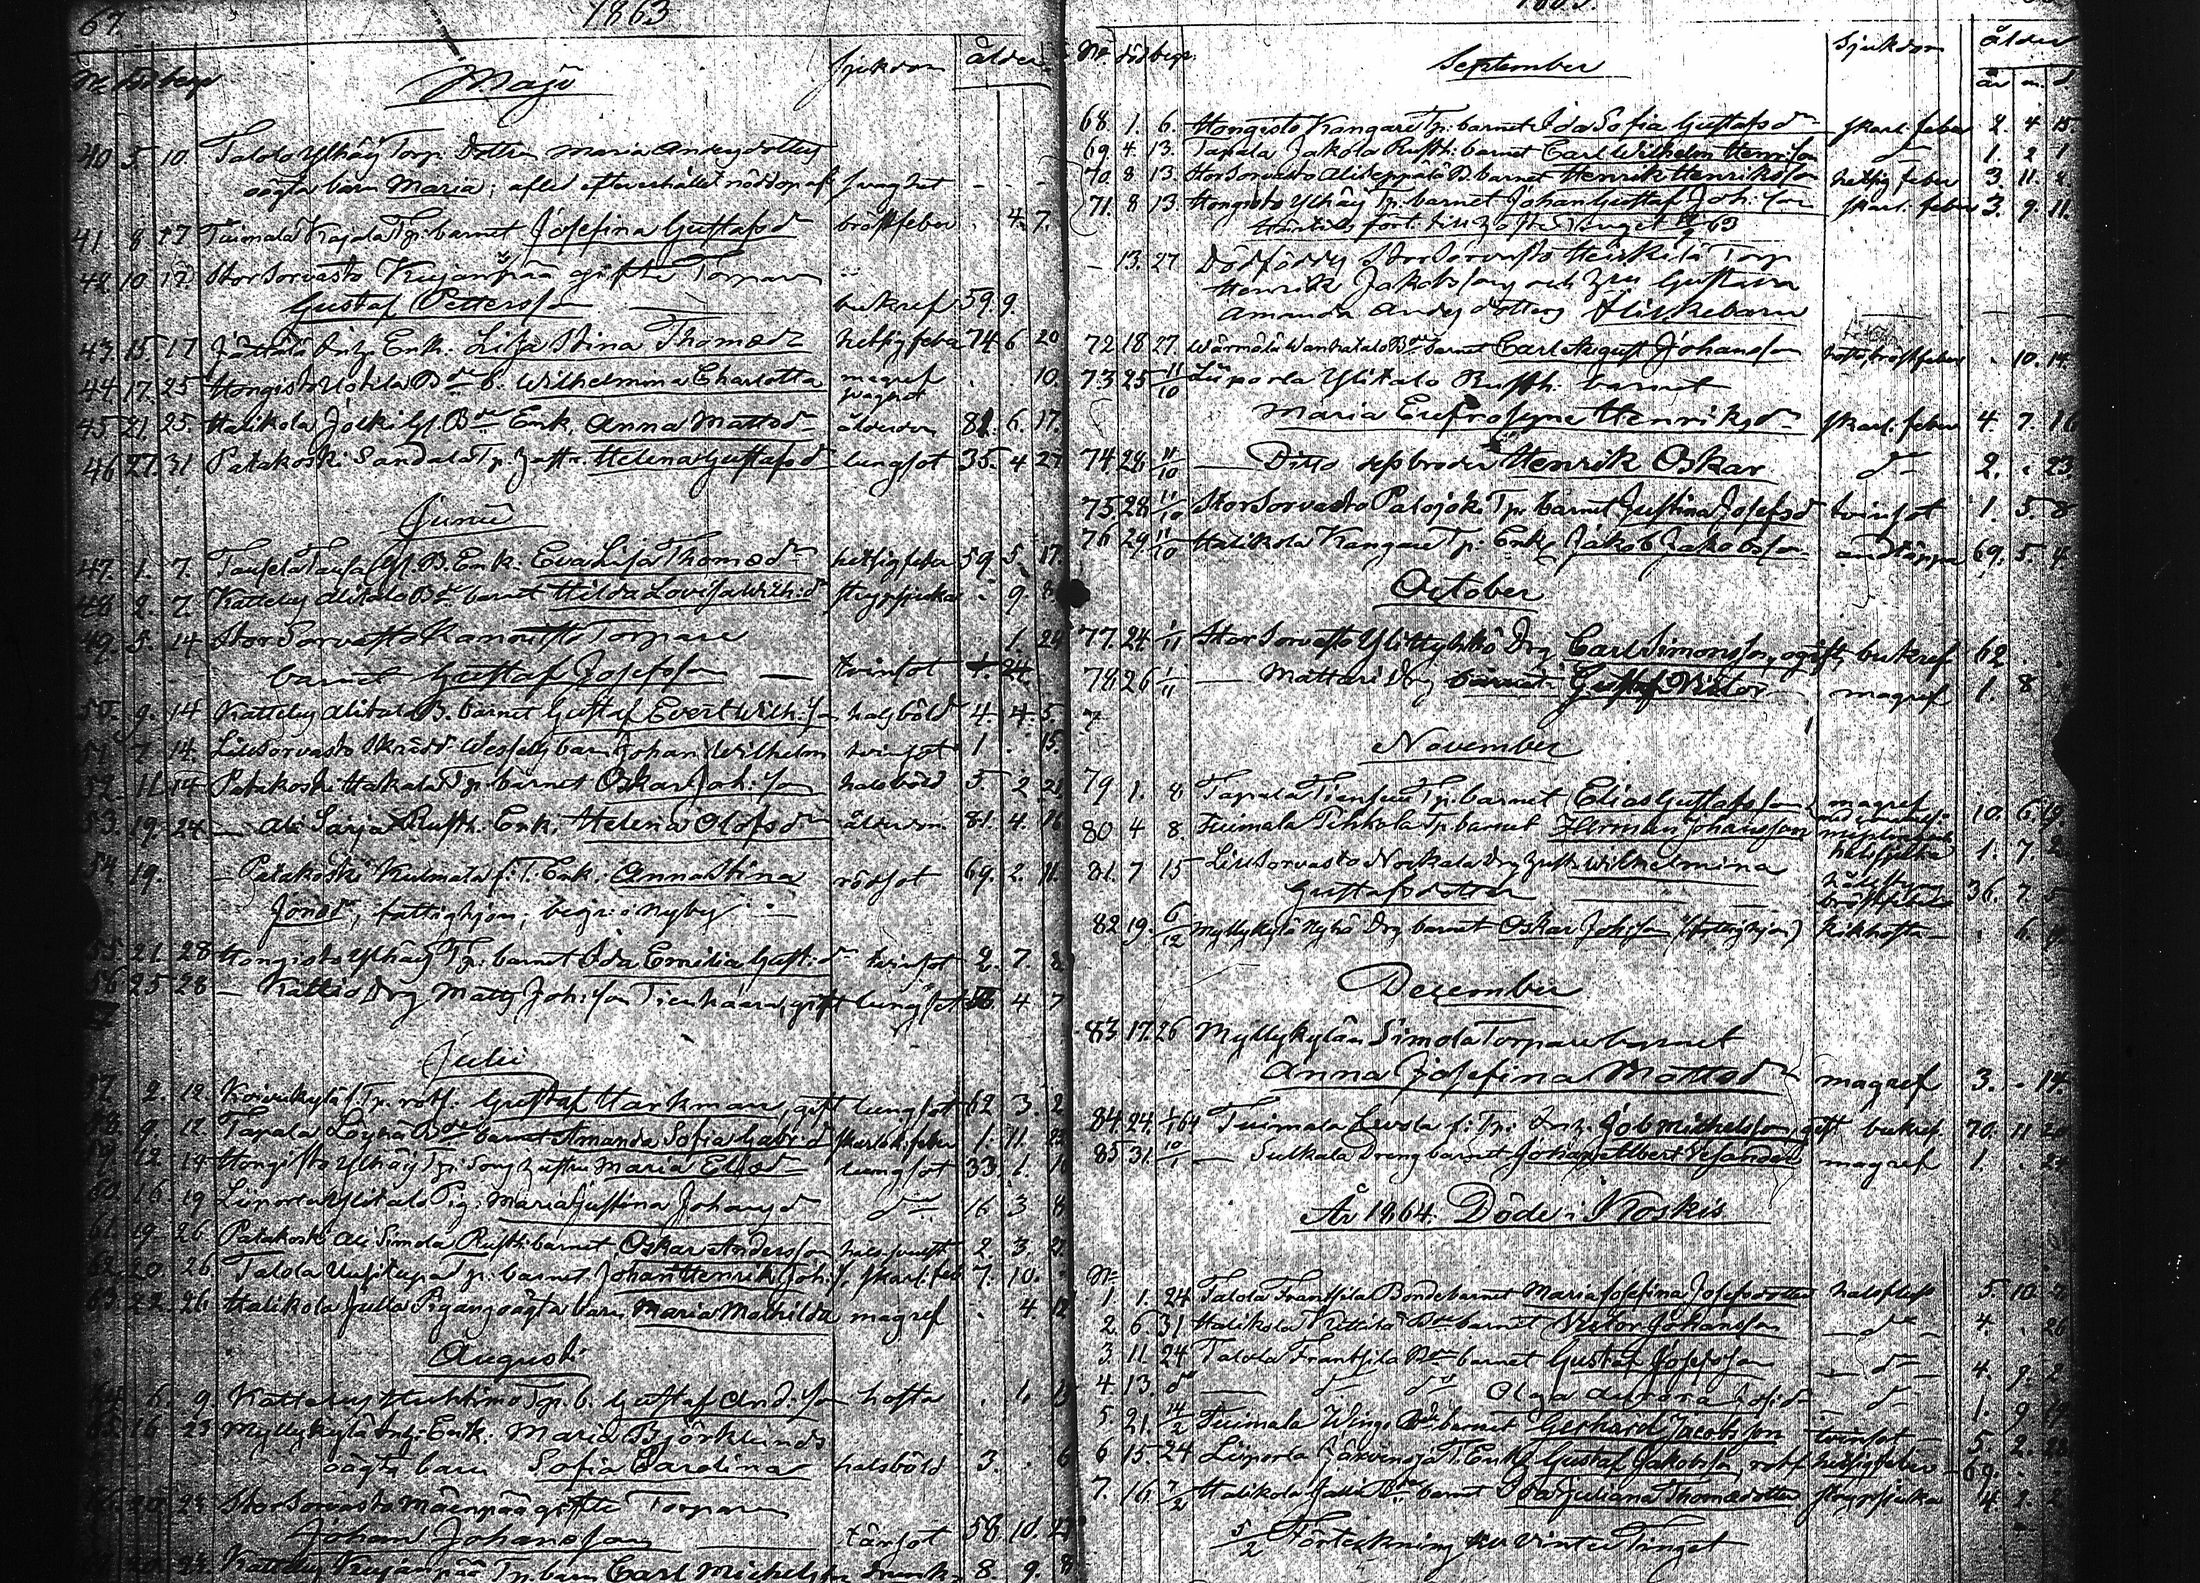 67. 1863
Majo
Sjukdom ålder
40 5 10 Talola Ylhäis Torp. Dottren Maria Andersdotters
oägta barn Maria, afled efter erhållet nöddop af svaghet - - -
41. 8 17 Tuimala Kajala Tp. barnet Josefina Gustafsdr bröstfeber . 4. 7.
42 10 17 Stor Sorvasto Kujanpää gifte Torparen
Gustaf Pettersson bukref 59. 9.
43. 15 17 Enk. Lisa Stina Thomasdr hetsig feber 74 6 20
44. 17. 25 Hongisto Uotila Bde b. Wilhelmina Charlotta magref . . 10.
45 21. 25. Halikola Jolki Gl. Bde Enk. Anna Mattsdr ålderdom 81. 6. 17.
46 27. 31 Patakoski Sandala Tp. hustr. Helena Gustafsdr lungsot 35. 4 27
Junii
47. 1. 7. Enk. Eva Lisa Thomasdr hetsig feber 59 5. 17
48 2. 7. Kattelus Alitalo Bde barnet Hilda Lovisa Wilh:dr strypsjuka . 9 8
49. 5. 14 Stor Sorvasto Torpare 1. 24
barnet Gustaf Josefsson tvinsot
50. 9. 14 Kattelus Alitalo B. barnet Gustaf Evert Wilh:son halsböld 4. 4. 5.
51 7 14. Lill Sorvasto Skrädd. barn Johan Wilhelm tvinsot 1 . 15.
52. 11. 14 Patakoski Hakala Tp. barnet Oskar Joh:son halsböld 5. 2 21
53. 19. 24 — Ali Sarja Rusth. Enk. Helena Olofsdr ålderdom 81. 4. 16
54. 19. — Patakoski Kulmala f. T. Enk. Anna Stina rödsot 69. 2. 11.
Jonasdr, fattighjon, begr. i Nyby
55. 21. 28 Hongisto Ylhäis Tp. barnet Ida Emilia Gust:dr tvinsot 2. 7. 8
56 25 28 — Kattio Drg Matts Joh:son Tienhaara, gift lungsot 4 7
Julii
57. 2. 12. Koivukylä f. Tp. rotf. Gustaf Harkman, gift lungsot 62 3. 2
58. 9. 12. Tapala Löyhä Bde barnet Amanda Sofia Gabr:dr skarl. feber 1. 11. 23
59 12. 19 Hongisto Ylhäis Tp. Sons hustru Maria Eliædr lungsot 33. 1. 16
60. 16. 19 Liiporla Ylitalo Pig. Maria Justina Johansdr do 16 3 8
61. 19. 26 Patakoski Ali Simola Rusth. barnet Oskar Andersson halssvulst 2. 3. 21
62. 20. 26. Talola Uusitupa Tp. barnet Johan Henrik Joh:s. skarl. feb 7. 10.
63. 22. 26 Halikola Julla Pigans oägta barn Maria Mathilda magref . 4. 12
Augusti
64 6. 9 Kattelus Huhtimo Tp. b. Gustaf And:son hosta . 1 15
65 16. 23 Myllykylä Enk. Maria Björklunds
oägta barn Sofia Carolina halsböld 3. . 6
66. 20. 23 Stor Sorvasto Mäenpää gifte Torparen
Johan Johansson tärsot 58. 10. 23
Kattelus Kujanpää Tp. barn Carl Michelsson 8. 9. 8
No död begr. September Sjukdom ålder
år m. d
68. 1. 6. Hongisto Kangare Tp. barnet Ida Sofia Gustafsdr skarl. feber 2. 4 15.
69 4. 13. Tapala Jakola Rusth. barnet Carl Wilhelm Henr:son do 1. 2 1
70. 8 13. Stor Sorvasto Aliseppälä B. barnet Henrik Henriksson hetsig feber 3. 11. 2.
71. 8 13 Hongisto Ylhäis Tp. barnet Johan Gustaf Joh:son skarl. feber 3. 9. 11.
Härtills fört. till Höste Tinget 63
— 13. 27 Dödfödd, Stor Sorvasto Heikkilä Torp.
Henrik Jakobssons och hus Gustava
Amanda Andersdotters Flickebarn
72 18 27. Wärmälä Wanhatalo Bde barnet Carl August Johansson bröstfeber . 10. 14.
73 25 11/10 Liiporla Ylitalo Rusth. barnet
Maria Eufrosyne Henriksdr skarl. feber 4. 7. 16
74 28. 11/10 — Ditto dess broder Henrik Oskar do 2. . 23.
75 28 11/10 Stor Sorvasto Palojoki Tp. barnet Justina Josefsd tvinsot 1. 5. 8
76 29. 11/10 Halikola Kangare Tp. Enkl. Jakob Jakobsson andtäppa 69. 5. 4.
October
77. 24. 1/11 Stor Sorvasto Drg Carl Simonsson, ogift bukref 62 . .
78 26 1/11 — Mattari Drg barnet Gustaf Viktor magref 1. 8
7
November
79 1. 8. Tapala Tiensuu Tp. barnet Elias Gustafsson magref 10. 6. 19
80 4 8. Tuimala Tikkola Tp. barnet Herman Johansson halssjuka 1. 7 2
81. 7 15 Lill Sorvasto Drg hustr. Wilhelmina
Gustafsdotter bröstfeber 36. 7. 5
82 19. 6/12 Myllykylä Nyhä Drg barnet Oskar Johsson (fattighjon) kikhosta . 6.
December
83 17. 26 Myllykylä Simola Torpare barnet
Anna Josefina Mattsdr magref 3. . 14.
84. 24. 1/1 64 Tuimala Levola f. Tp. Inh. Job Michelsson, gift bukref 70. 11 20
85 31. 10/1 — Sulkala Dreng barnet Johan Albert Vesander magref 1. . 24
År 1864. Döde i Koskis
No
1. 1. 24 Talola Frantsila Bonde barnet Maria Josefina Josefsdotter halsfluss 5. 10. 7
2. 6. 31 Halikola Bde barnet Viktor Johansson — do — 4. . 26
3. 11. 24 Talola Frantsila Bde barnet Gustaf Josefsson — do — 4. 9. 2
4 13. do — do do Olga Aurora Jos:dr — do — 1. 9
5. 21. 14/2 Tuimala Wingo Bde barnet Gerhard Jacobsson tvinsot 5. 2. 22
6 15. 24 Liiporla Järvenoja T. Enkl. Gustaf Jakobsson, rotf hetsig feber 69.
7. 16. 7/2 Halikola Jalla Bde barnet Ida Juliana Thomædotter strypsjuka 4. 2. 2
5/2 Förteckning till Winter Tinget